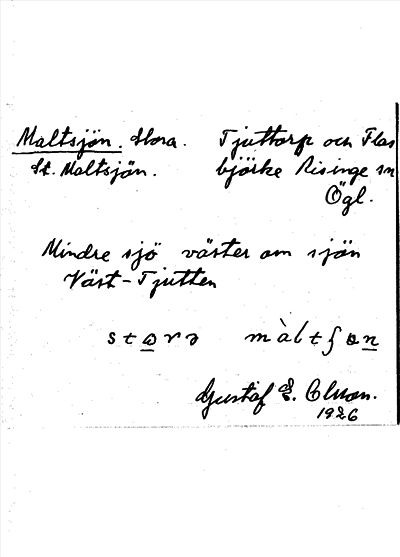 Maltsjön. Stora. Tjuttorp och Flas
St. Maltsjön. björke Risinge sn
Ögl.
Mindre sjö väster om sjön
Väst-Tjutten
Gustaf E. Olson.
1926